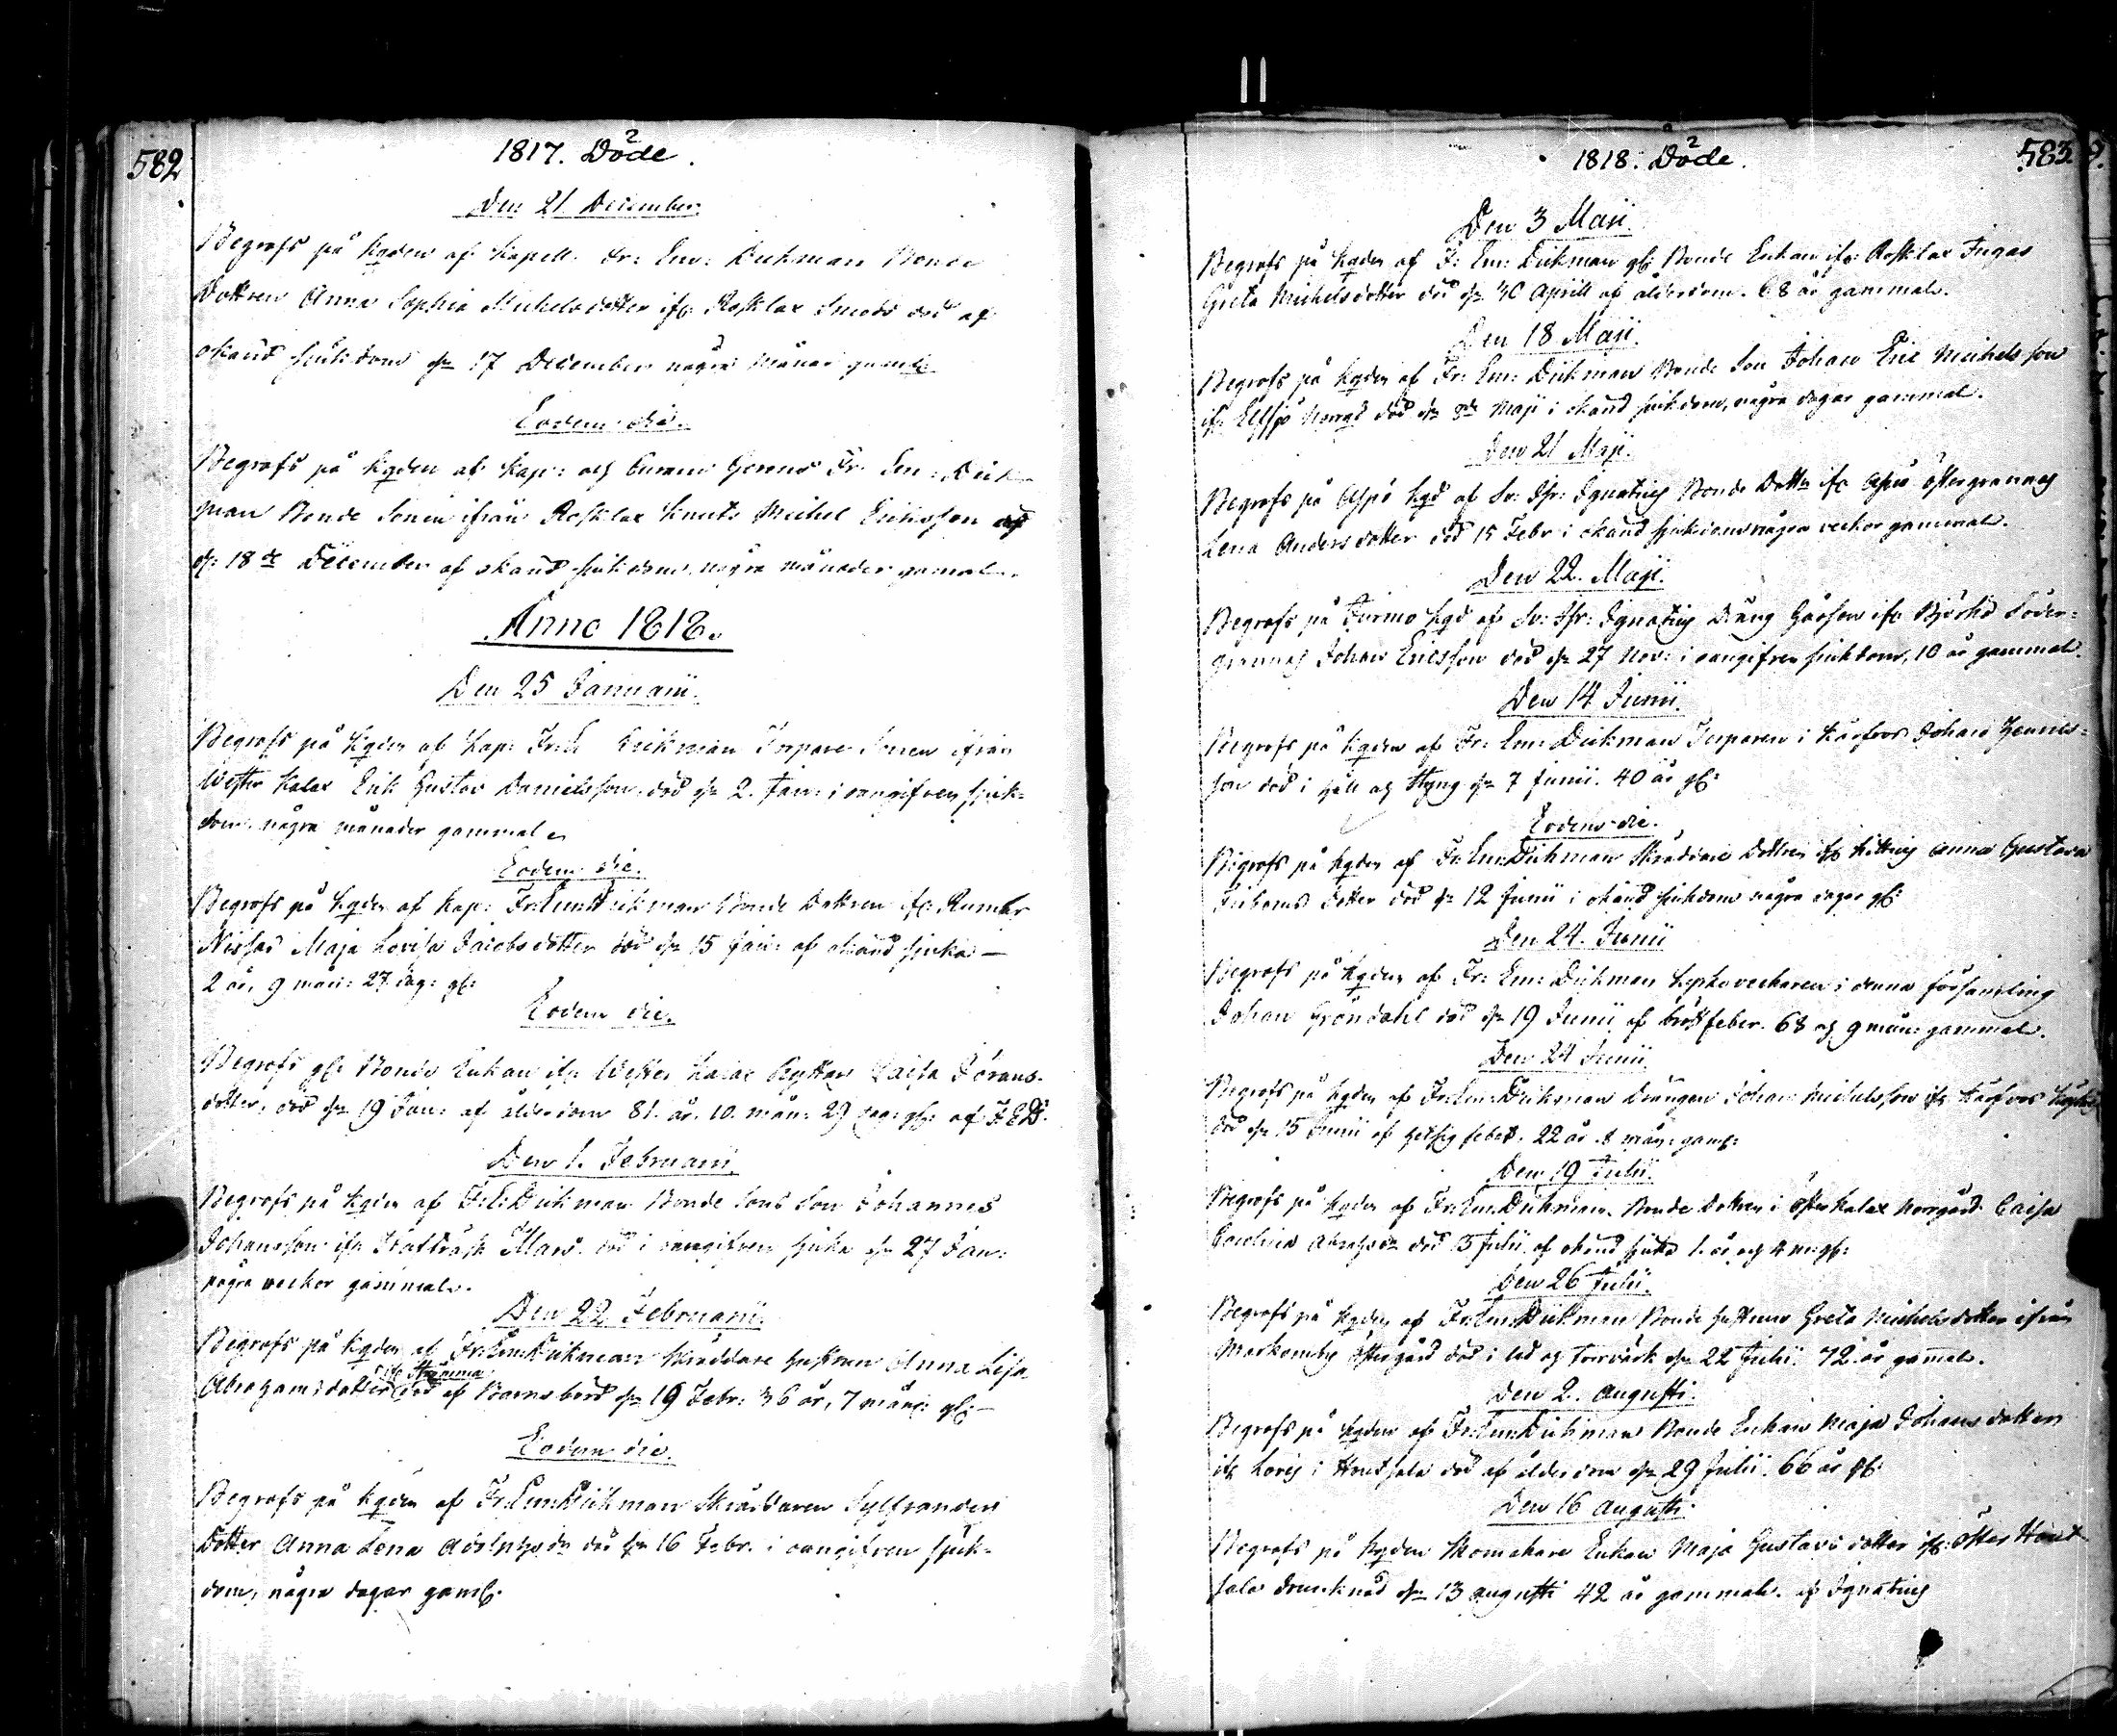 582
1817. Döde.
Den 21 December.
Begrofs på kgden af Kapell. Fr: Em: Dickman Bonde
Dottren Anna Sophia Michelsdotter ifr: Rosklax Smeds död af
okänd sjukdom d: 17 December några månar gamel
Eodem die.
Begrofs på kgden af Kap: och Fr. Em: Dick-
man Bonde Sonen ifrån Rosklax Knuts Michel Ericsson
d: 18de December af okänd sjukdom, några månader gamal.
Anno 1818.
Den 25 Januarii.
Begrofs på kgden af Kap: Fr: E Dickman Torpare Sonen ifrån
Wester Kalax Erik Gustav Danielsson, död d: 2. Jan: i oangifven sjuk-
dom några månader gammal
Eodem die.
Begrofs på kgden af Kap: Fr: Em: Dickman Bonde Dottren ifr: Rumar
Nissas Maja Lovisa Jacobsdotter död d: 15 Jan: af okänd sjuka —
2 år, 9 mån: 27 dag: gl:
Eodem die.
Begrofs gl: Bonde Enkan ifr: Wester Kalax Ryttar Caisa Jörans-
dotter, död d: 19 Jan: af ålderdom 81. år. 10. mån: 29 dag: gl: af F: E D:
Den 1. Februarii.
Begrofs på kgden af F: E: Dickman Bonde Sons Son Johannes
Johansson ifr: Mars. död i oangifven sjuka d: 27 Jan:
några veckor gammal.
Den 22 Februarii.
Begrofs på kgden af Fr: Em: Dickman Skräddare hustrun Anna Lisa
ifr: Strömma
Abrahamsdotter död af Barnsbörd d: 19 Febr: 36 år, 7 mån: gl: —
Eodem die.
Begrofs på kgden af Fr: Em: Dickman Skräddaren Sylfvanders
Dotter Anna Lena Adolphsdr död d: 16 Febr. i oangifven sjuk-
dom, några dagar gaml:
1818. Döde.
583
Den 3 Maji.
Begrofs på kgden af F: Em: Dickman gl: Bonde Enkan ifr: Rosklax Ingas
Greta Michelsdotter död d: 30 April af ålderdom. 68 år gammal.
Den 18 Maji.
Begrofs på kgden af Fr: Em: Dickman Bonde Son Johan Eric Michelsson
ifr: Elfsjö Norrgd död d: 8de Maji i okänd sjukdom, några dagar gammal.
Den 21 Maji.
Begrofs på Aspö kgd af Sv: Ignatius Bonde Dotter ifr: Aspö Östergrannas
Lena Andersdotter död 15 Febr i okänd sjukdom några veckor gammal.
Den 22. Maji.
Begrofs på Jurmo kgd af Sv: Ignatius Dräng Gåsson ifr: Björkö Söder-
grannas Johan Ericsson död d: 27 Nov: i oangifven sjukdom, 10 år gammal.
Den 14 Junii.
Begrofs på kgden af Fr: Em: Dickman Torparen i Kårfvos Johan Hennes-
son död i håll och styng d: 7 Junii. 40 år gl:
Eodem die.
Begrofs på kgden af Fr: Em: Dickman Skräddare Dottren ifr: Kittuis Anna Gustava
dotter död d: 12 Junii i okänd sjukdom några dagar gl:
Den 24. Junii
Begrofs på kgden af Fr: Em: Dickman Kyrkoveckaren i denna församling
Johan Gröndahl död d: 19 Junii af bröstfeber. 68 och 9 mån: gammal.
Den 24 Junii.
Begrofs på kgden af Fr: Em: Dickman Drängen Johan Michelsson ifr: Kårfvos
död d: 15 Junii af hetsig feber. 22 år. 8 mån: gaml:
Den 19 Julii.
Begrofs på kgden af Fr: Em: Dickman. Bonde Dottren i Österkalax Norrgård Caisa
Carolina död 15 Julii af okänd sjuka 1. år och 4 m: gl:
Den 26 Julii.
Begrofs på kgden af Fr: Em: Dickman Bonde hustrun Greta Michelsdotter ifrån
Markomby Östergård död i led och torrvärk d: 22 Julii. 72. år gammal.
Den 2. Augusti.
Begrofs på kgden af Fr: Em: Dickman Bonde Enkan Maja Johansdotter
ifr: Lovis i Houtsala död af ålderdom d: 29 Julii. 66 år gl:
Den 16 Augusti.
Begrofs på kgden Skomakare Enkan Maja Gustavsdotter ifr: Öster Hout-
sala drunknad d: 13 Augusti 42 år gammal. af Ignatius